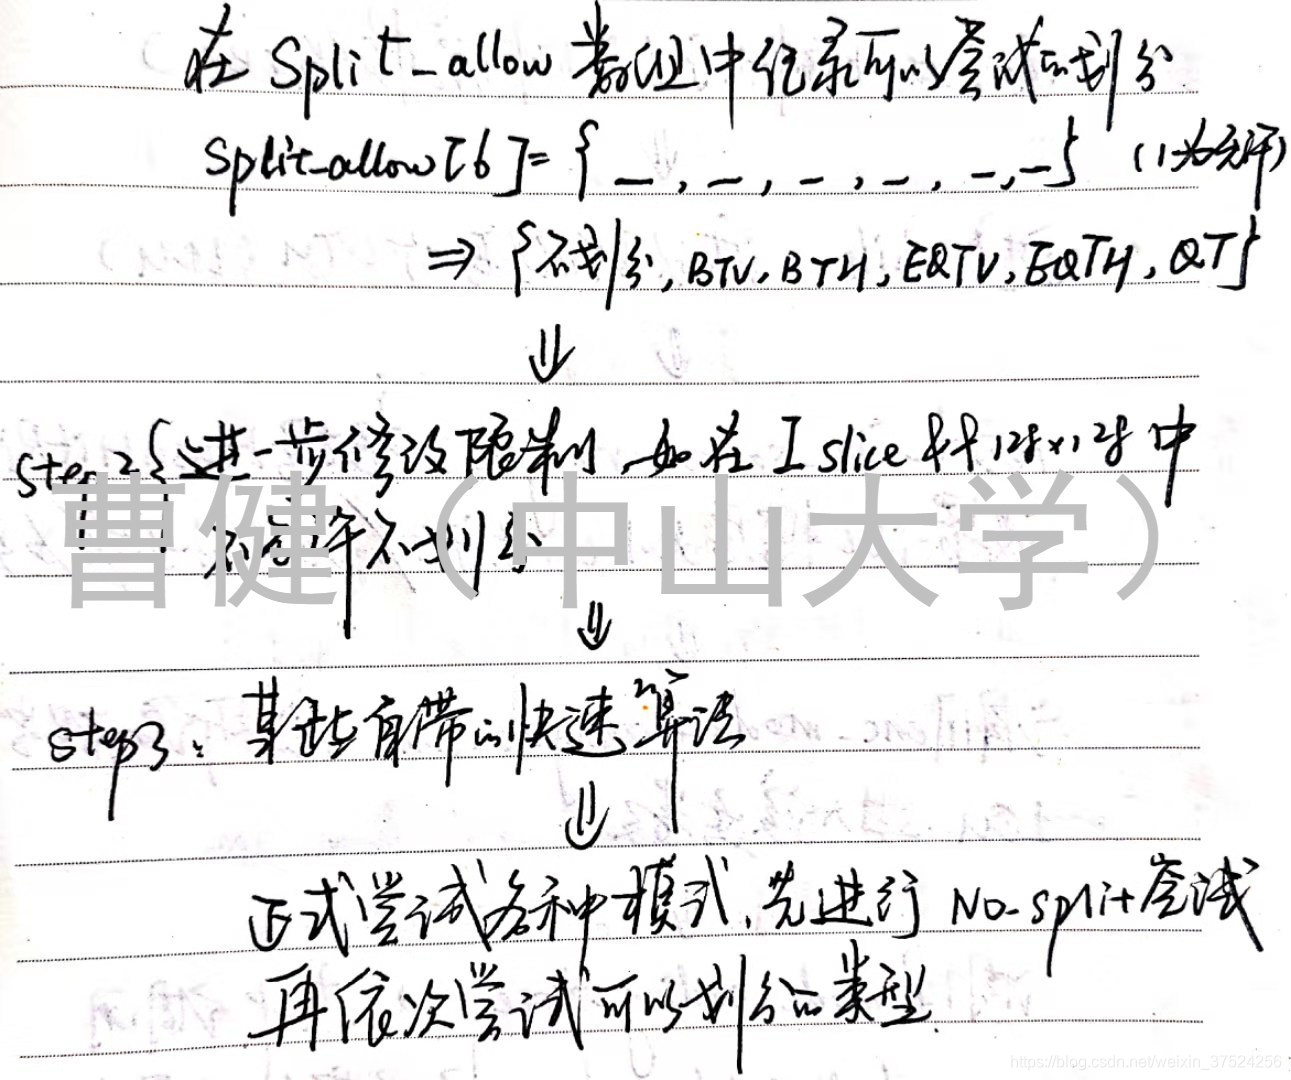 在 Split_allow 数组中记录可以尝试的划分
Split_allow[6]= { _ , _ , _ , _ , _ , _ } (1为允许)
⇒ {不划分, BTV, BTH, EQTV, EQTH, QT}
⇓
step2 { 进一步修改限制, 如在 I slice 中 128×128 中
不允许不划分
⇓
step3: 某些自带的快速算法
⇓
正式尝试各种模式, 先进行 No-split 尝试
再依次尝试可以划分的类型
曹健（中山大学）
https://blog.csdn.net/weixin_37524256